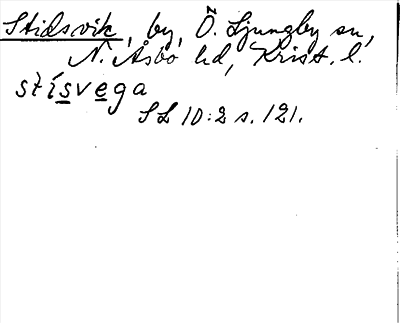 Stidsvik, by, Ö. Ljungby sn,
N. Åsbo hd, Krist. l.
stísvega
SL 10:2 s. 121.